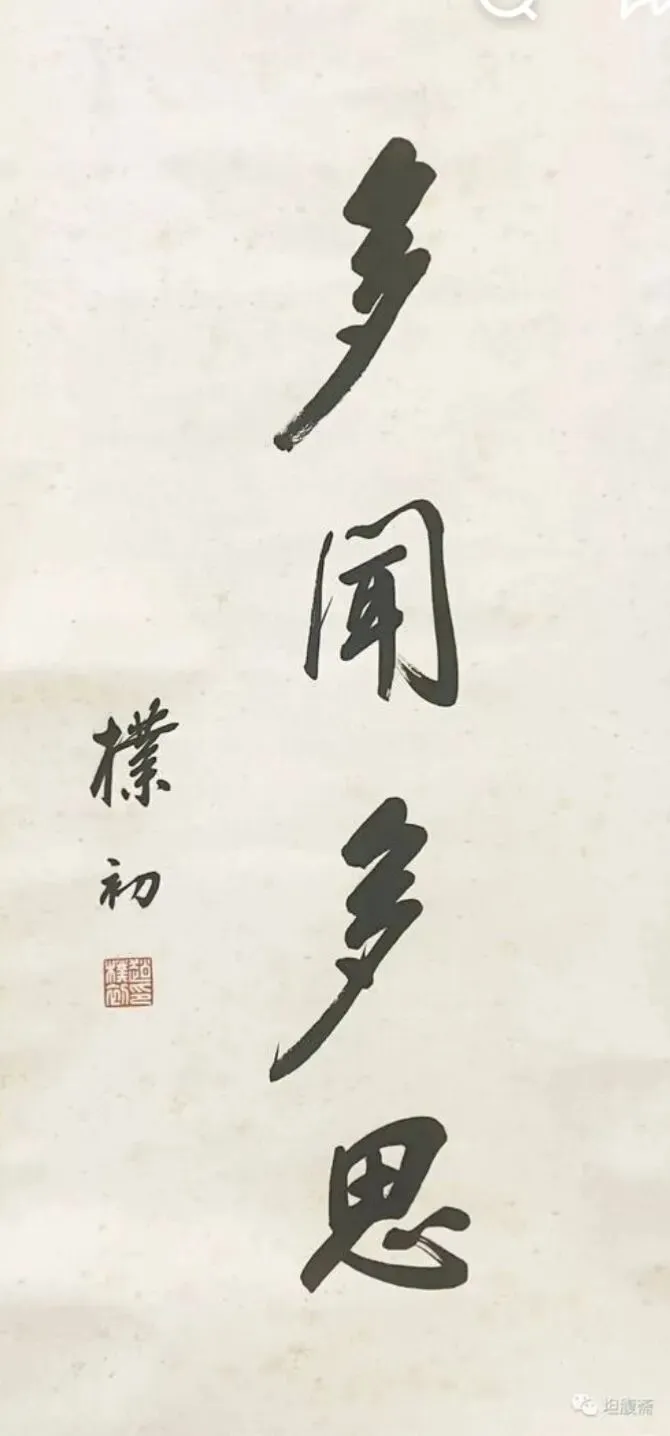 多聞多思
樸初
趙樸初印
坦腹斋